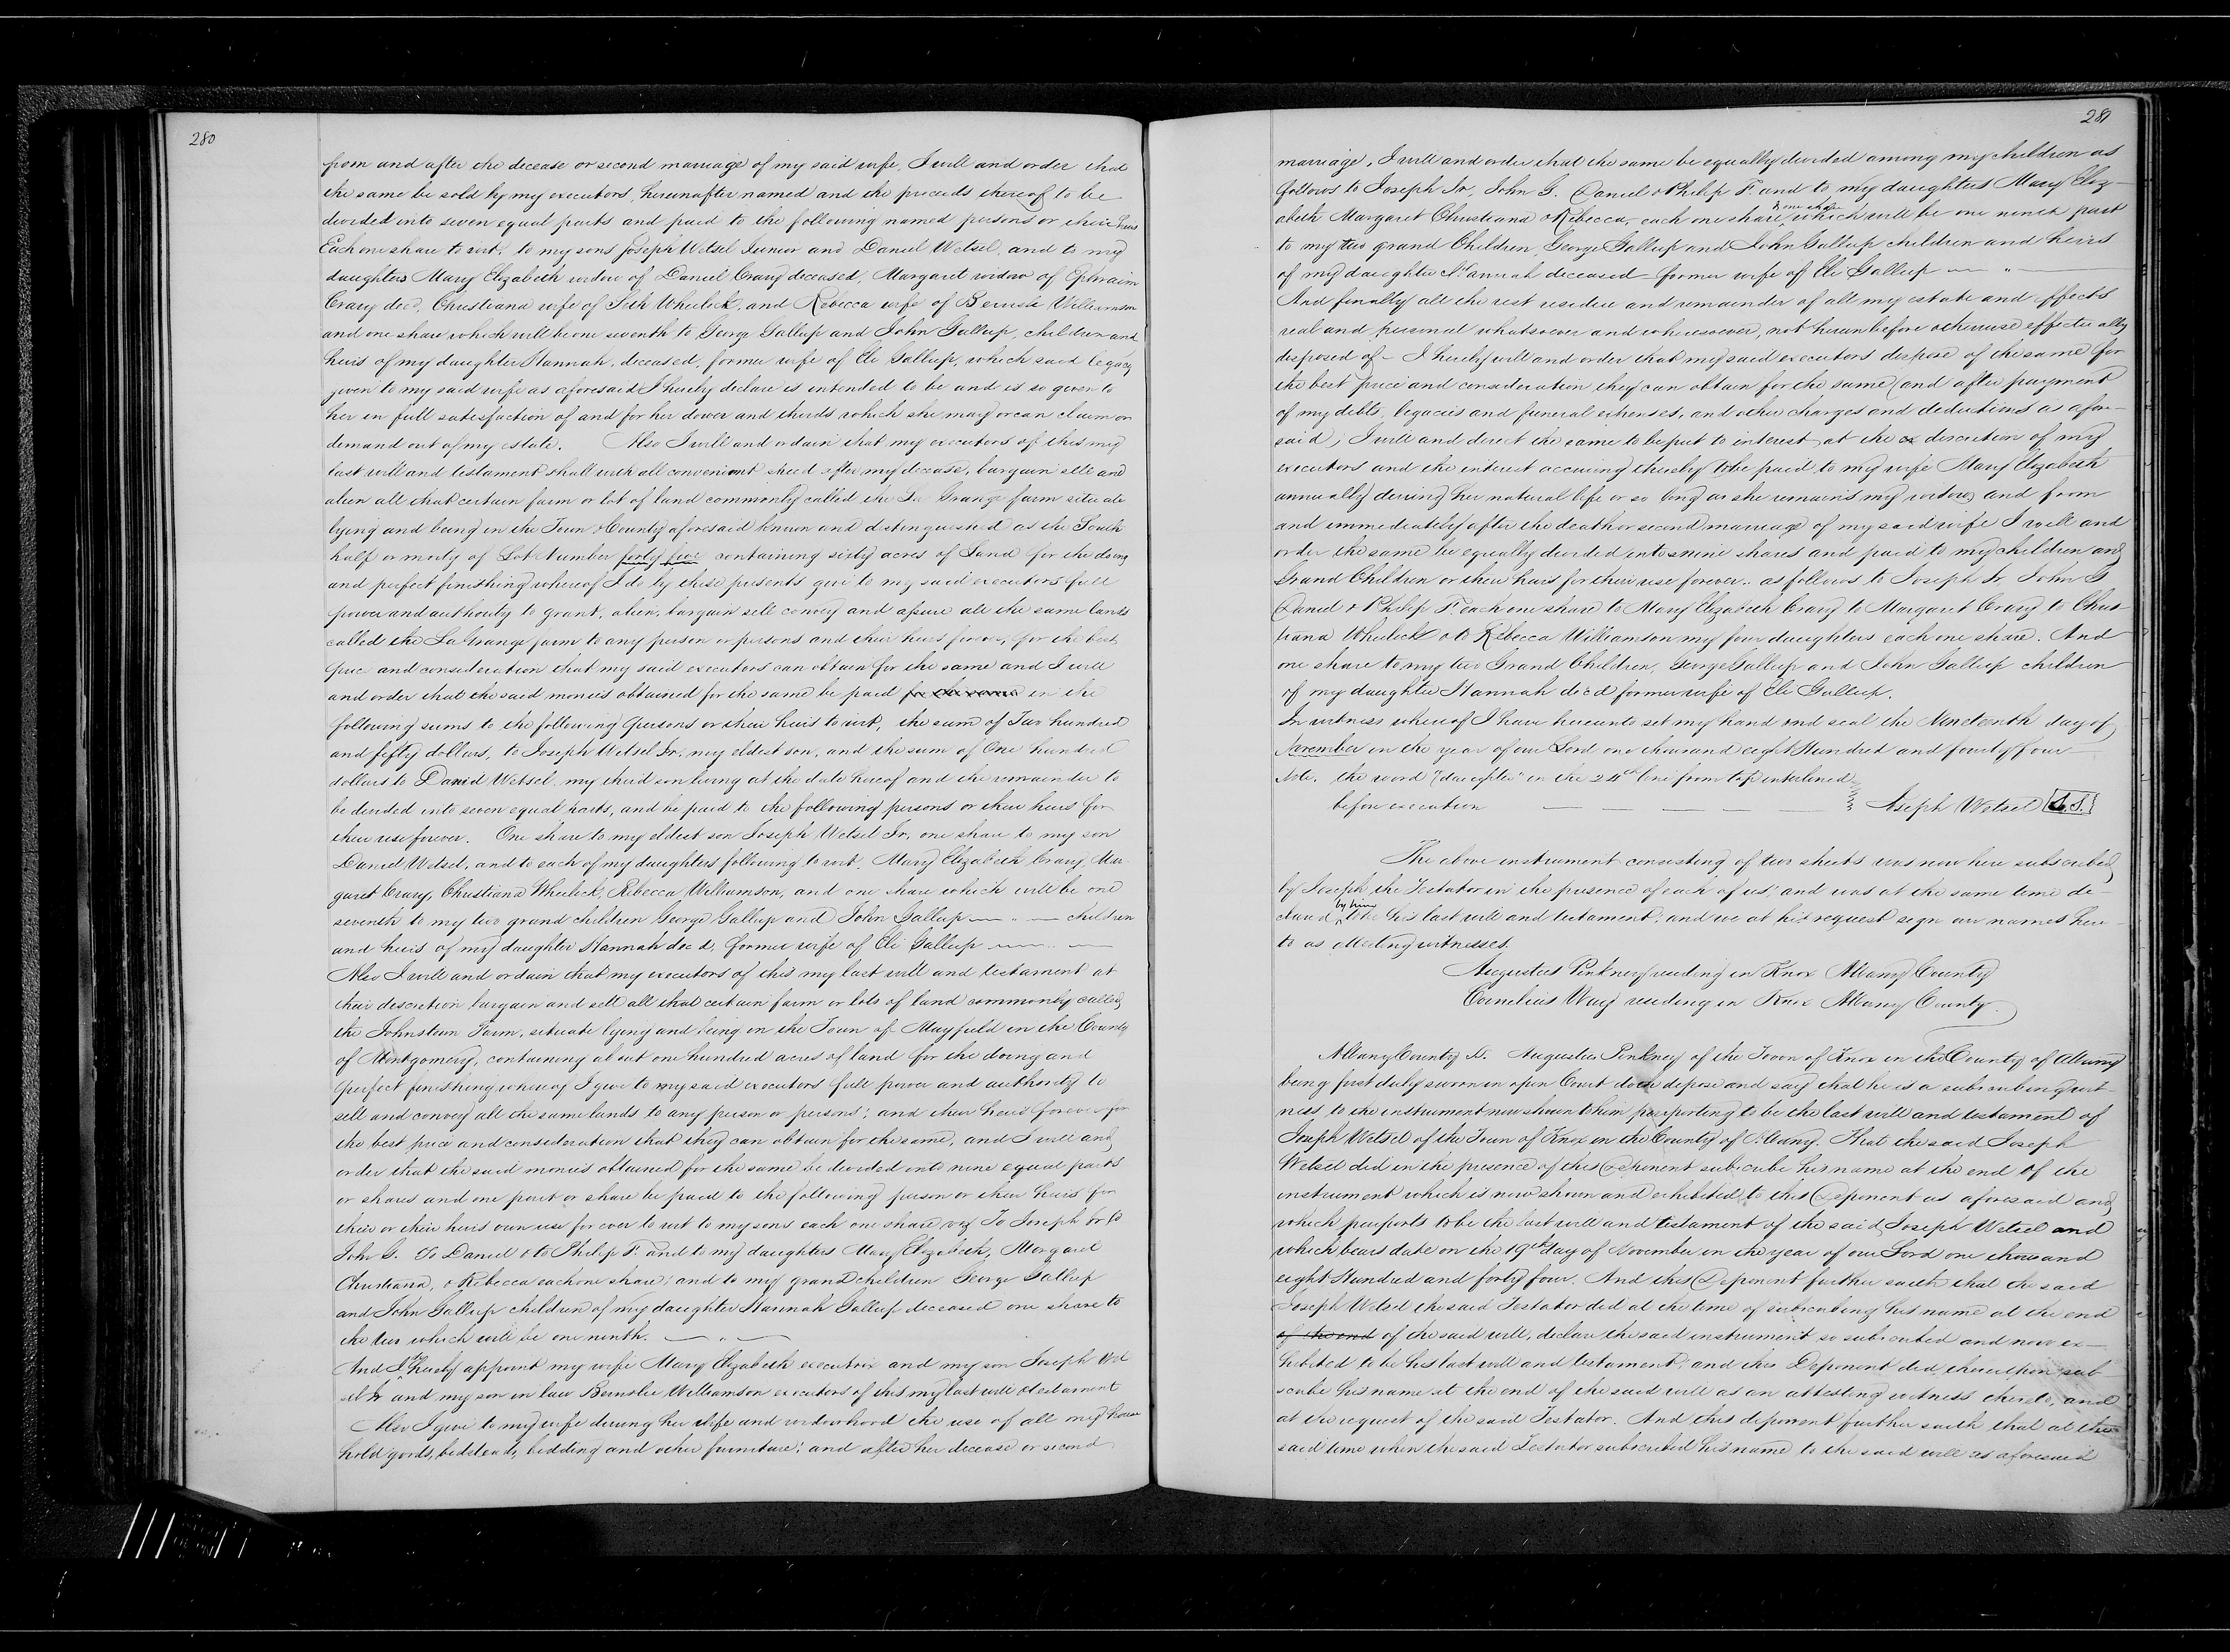 280
from and after the decease or second marriage of my said wife, I will and order that
the same be sold by my executors, hereinafter named and the proceeds thereof to be
devided into seven equal parts and paid to the following named persons or their heirs
Each one share to wit, to my sons Joseph Wetsel Junior and Daniel Wetsel, and to my
daughters Mary Elizabeth widow of Daniel Crary deceased, Margaret widow of Ephraim
Crary decd, Christiana wife of Seth Wheelock, and Rebecca wife of Bernslie Williamson
and one share which will be one seventh to George Gallup and John Gallup, children and
heirs of my daughter Hannah, deceased, former wife of Eli Gallup, which said legacy
given to my said wife as aforesaid I hereby declare is intended to be and is so given to
her in full satisfaction of and for her dower and thirds which she may or can claim or
demand out of my estate. Also I will and ordain that my executors of this my
last will and testament shall with all convenient speed after my decease, bargain sell and
alien all that certain farm or lot of land commonly called the La Grange farm situate
lying and being in the Town & County aforesaid known and distinguished as the South
half or moity of Lot Number forty five containing sixty acres of Land for the doing
and perfect finishing whereof I do by these presents give to my said executors full
power and authority to grant, alien, bargain sell convey and assure all the same lands
called the LaGrange farm to any person or persons and their heirs forever, for the best
price and consideration that my said executors can obtain for the same and I will
and order that the said monies obtained for the same be paid for the same in the
following sums to the following persons or their heirs to wit, the sum of Two hundred
and fifty dollars, to Joseph Wetsel Jr. my eldest son, and the sum of One hundred
dollars to Daniel Wetsel my third son living at the date hereof and the remainder to
be devided into seven equal parts, and be paid to the following persons or their heirs for
their use forever. One share to my eldest son Joseph Wetsel Jr, one share to my son
Daniel Wetsel, and to each of my daughters following to wit. Mary Elizabeth Crary, Mar
garet Crary, Christiana Wheelock, Rebecca Williamson, and one share which will be one
seventh to my two grand children George Gallup and John Gallup — " — children
and heirs of my daughter Hannah decd, former wife of Eli Gallup
Also I will and ordain that my executors of this my last will and testament at
their descretion bargain and sell all that certain farm or lots of land commonly called
the Johnstown Farm, situate lying and being in the Town of Mayfield in the County
of Montgomery, containing about one hundred acres of land for the doing and
perfect finishing whereof I give to my said executors full power and authority to
sell and convey all the same lands to any person or persons; and their heirs forever for
the best price and consideration that they can obtain for the same, and I will and
order that the said monies obtained for the same be devided into nine equal parts
or shares and one part or share be paid to the following person or their heirs for
their or their heirs own use for ever to wit to my sons each one share viz To Joseph Jr to
John G. To Daniel & to Philip F. and to my daughters Mary Elizabeth, Margaret
Christiana, & Rebecca each one share; and to my grand children George Gallup
and John Gallup children of my daughter Hannah Gallup deceased one share to
the two which will be one ninth. — " —
And I do hereby appoint my wife Mary Elizabeth executrix and my son Joseph Wet
sel Jr and my son in law Bernslie Williamson executors of this my last will & testament
Also I give to my wife during her life and widowhood the use of all my house
hold goods, bedsteads, bedding and other furniture; and after her decease or second
281
marriage, I will and order that the same be equally devided among my children as
follows to Joseph Jr, John G. Daniel & Philip F. and to my daughters Mary Eliz-
abeth Margaret Christiana & Rebecca, each one share & one share which will be one ninth part
to my two grand Children, George Gallup and John Gallup children and heirs
of my daughter Hannah deceased former wife of Eli Gallup — " —
And finally all the rest residue and remainder of all my estate and effects
real and personal whatsoever and wheresoever, not herein before otherwise effectually
disposed of – I hereby will and order that my said executors dispose of the same for
the best price and consideration they can obtain for the same (and after payment
of my debts, legacies and funeral expenses, and other charges and deductions as afore-
said, I will and direct the same to be put to interest at the descretion of my
executors and the interest accruing thereby to be paid to my wife Mary Elizabeth
annually during her natural life or so long as she remains my widow, and from
and immediately after the death or second marriage of my said wife I will and
order the same be equally devided into nine shares and paid to my children and
Grand Children or their heirs for their use forever.. as follows to Joseph Jr. John G
Daniel & Philip F. each one share to Mary Elizabeth Crary to Margaret Crary to Chris
tiana Wheelock & to Rebecca Williamson my four daughters each one share. And
one share to my two Grand Children, George Gallup and John Gallup children
of my daughter Hannah decd former wife of Eli Gallup.
In witness whereof I have hereunto set my hand and seal the Nineteenth day of
November in the year of our Lord one thousand eight Hundred and fourty four
Note. the word "daughter" in the 24th line from top interlined
before execution Joseph Wetsel L.S.
The above instrument consisting of two sheets was now here subscribed
by Joseph the Testator in the presence of each of us; and was at the same time de-
clared by him to be his last will and testament; and we at his request sign our names here-
to as attesting witnesses.
Augustus Pinkney residing in Knox Albany County
Cornelius Way residing in Knox Albany County.
Albany County ss. Augustus Pinkney of the Town of Knox in the County of Albany
being first duly sworn in open Court doth depose and say that he is a subscribing wit-
ness to the instrument now shown to him purporting to be the last will and testament of
Joseph Wetsel of the Town of Knox in the County of Albany. That the said Joseph
Wetsel did in the presence of this Deponent subscribe his name at the end of the
instrument which is now shown and exhibited to this Deponent as aforesaid and
which purports to be the last will and testament of the said Joseph Wetsel and
which bears date on the 19th day of November in the year of our Lord one thousand
eight Hundred and forty four. And this Deponent further saith that the said
Joseph Wetsel the said Testator did at the time of subscribing his name at the end
of the end of the said will, declare the said instrument so subscribed and now ex-
hibited to be his last will and testament; and this Deponent did thereupon sub
scribe his name at the end of the said will as an attesting witness thereto, and
at the request of the said Testator. And this deponent further saith that at the
said time when the said Testator subscribed his name to the said will as aforesaid